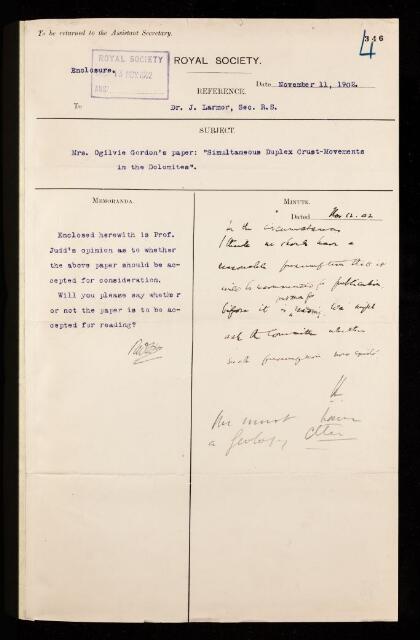 To be returned to the Assistant Secretary.
346
4
ROYAL SOCIETY
13 NOV 1902
ANSD
ROYAL SOCIETY.
Enclosure.
REFERENCE.
Date November 11, 1902.
To
Dr. J. Larmor, Sec. R.S.
SUBJECT.
Mrs. Ogilvie Gordon's paper: "Simultaneous Duplex Crust-Movements
in the Dolomites".
MEMORANDA.
Enclosed herewith is Prof.
Judd's opinion as to whether
the above paper should be ac-
cepted for consideration.
Will you please say whether
or not the paper is to be ac-
cepted for reading?
MINUTE.
Dated Nov 12. 02
In the circumstances
I think we should have a
reasonable presumption that it
will be recommended for publication
before it is reading. We might
ask the Committee whether
such presumption would exist
We must have
a Geology Cttee